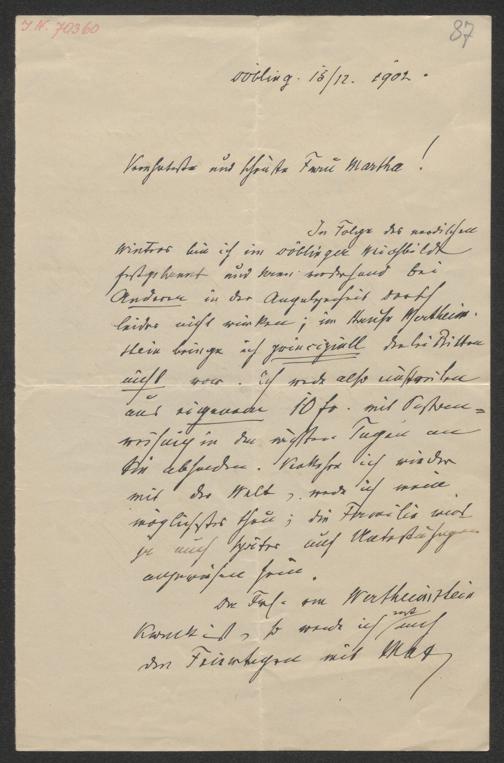 J. N. 70360
87
Döbling. 15/12. 1902.
Verehrteste und schönste Frau Martha!
In Folge des nordischen
Winters bin ich im Döblinger Weichbilde
festgebannt und kann vorderhand bei
Anderen in der Angelegenheit
leider nicht wirken; im Hause Wertheim-
stein bringe ich principiell derlei Bitten
nicht vor. Ich werde also
aus eigenem 10 fr. mit Postan-
weisung in den nächsten Tagen an
Sie absenden. Verkehre ich wieder
mit der Welt, werde ich mein
möglichstes thun; die Familie wird
ja auch später auf Unterstützungen
angewiesen sein.
Da Frl. von Wertheimstein
krank ist, so werde ich erst nach
den Feiertagen mit